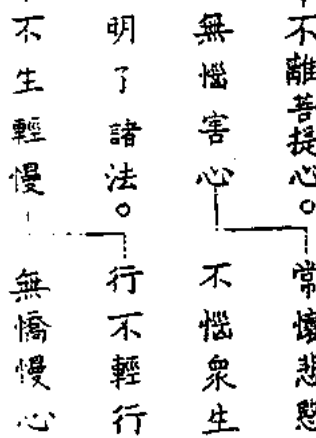 不離菩提心。常懷悲愍
無惱害心 不惱衆生
明了諸法。行不輕行
不生輕慢 無憍慢心